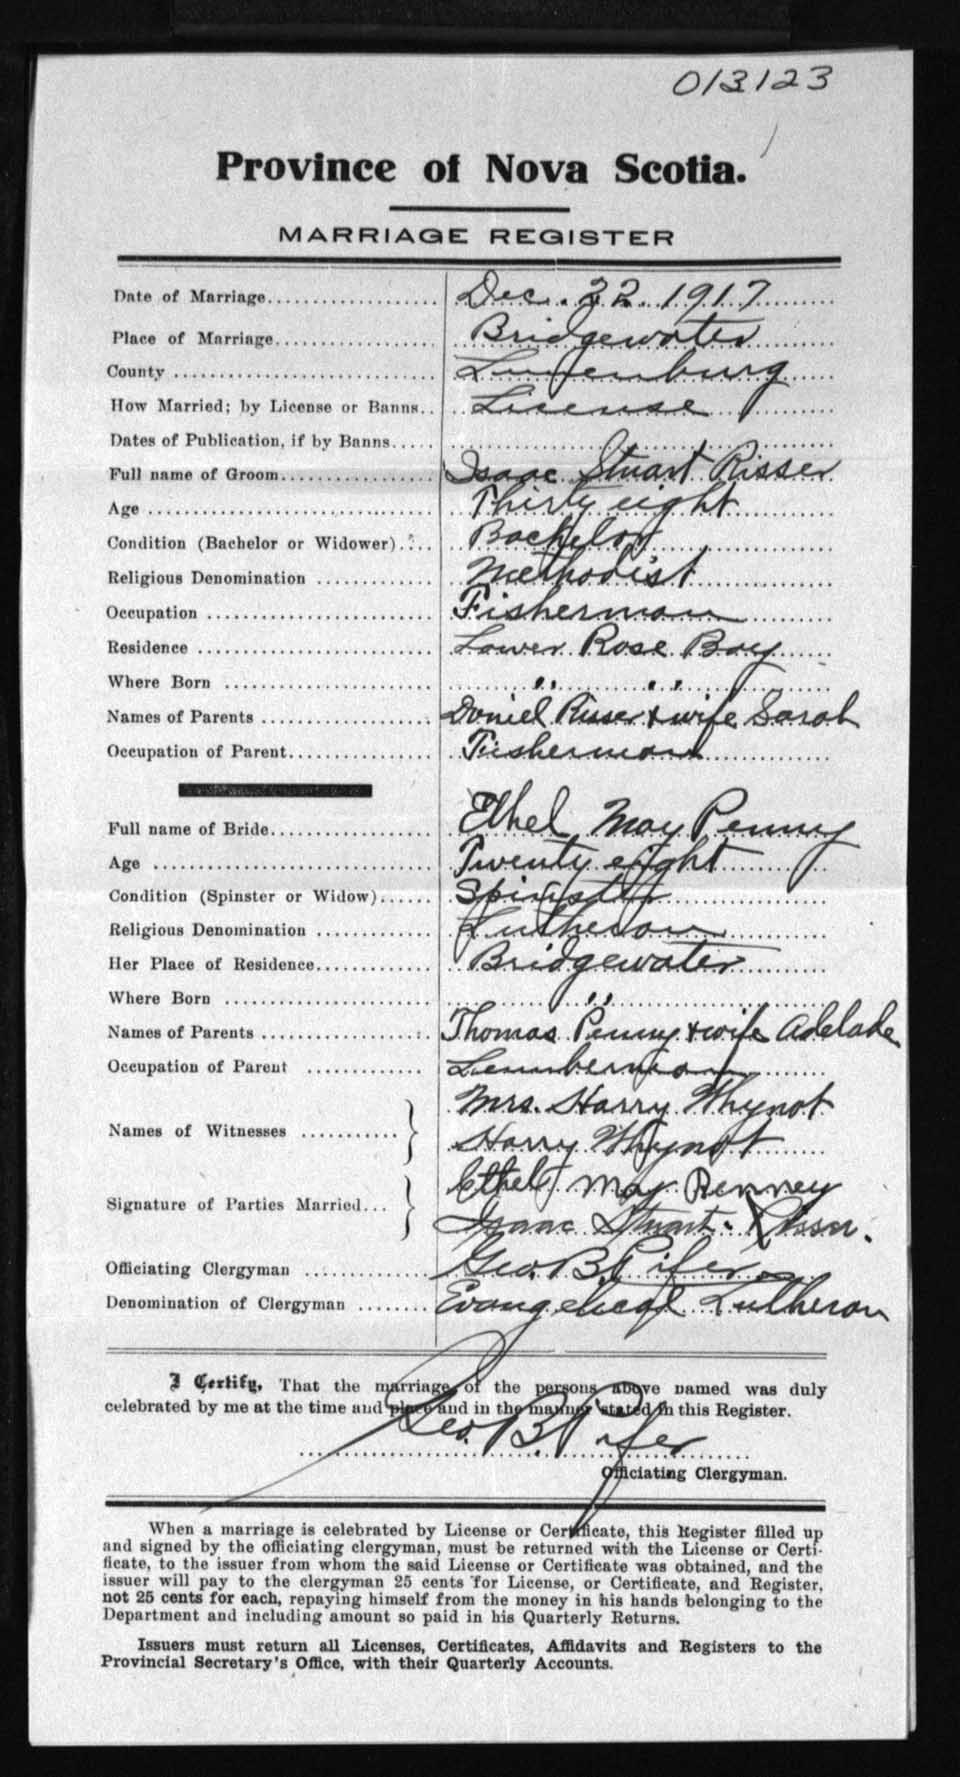 013123
Province of Nova Scotia.
MARRIAGE REGISTER
Date of Marriage.................... Dec. 22. 1917
Place of Marriage................... Bridgewater
County ............................. Lunenburg
How Married; by License or Banns.. License
Dates of Publication, if by Banns.....
Full name of Groom................. Isaac Stuart Risser
Age ................................ Thirty eight
Condition (Bachelor or Widower).... Bachelor
Religious Denomination ............. Methodist
Occupation ......................... Fisherman
Residence .......................... Lower Rose Bay
Where Born ........................ " "
Names of Parents .................. Daniel Risser & wife Sarah
Occupation of Parent................ Fisherman
Full name of Bride.................. Ethel May Penny
Age ................................ Twenty eight
Condition (Spinster or Widow)...... Spinster
Religious Denomination ............. Lutheran
Her Place of Residence.............. Bridgewater
Where Born ........................ "
Names of Parents .................. Thomas Penny & wife Adelade
Occupation of Parent ............. Lumberman
Mrs. Harry Whynot
Names of Witnesses ...........
Harry Whynot
Ethel May Penney
Signature of Parties Married...
Isaac Stuart. Risser.
Officiating Clergyman ............. Geo. B. Pifer
Denomination of Clergyman ........ Evangelical Lutheran
I Certify, That the marriage of the persons above named was duly
celebrated by me at the time and place and in the manner stated in this Register.
Geo. B. Pifer
Officiating Clergyman.
When a marriage is celebrated by License or Certificate, this Register filled up
and signed by the officiating clergyman, must be returned with the License or Certi-
ficate, to the issuer from whom the said License or Certificate was obtained, and the
issuer will pay to the clergyman 25 cents for License, or Certificate, and Register,
not 25 cents for each, repaying himself from the money in his hands belonging to the
Department and including amount so paid in his Quarterly Returns.
Issuers must return all Licenses, Certificates, Affidavits and Registers to the
Provincial Secretary's Office, with their Quarterly Accounts.